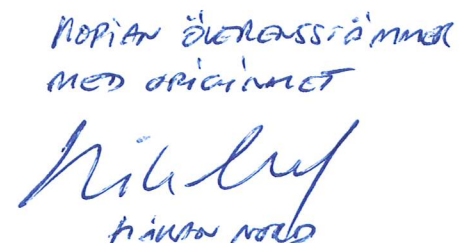 KOPIAN ÖVERENSSTÄMMER
MED ORIGINALET
HÅKAN NORD